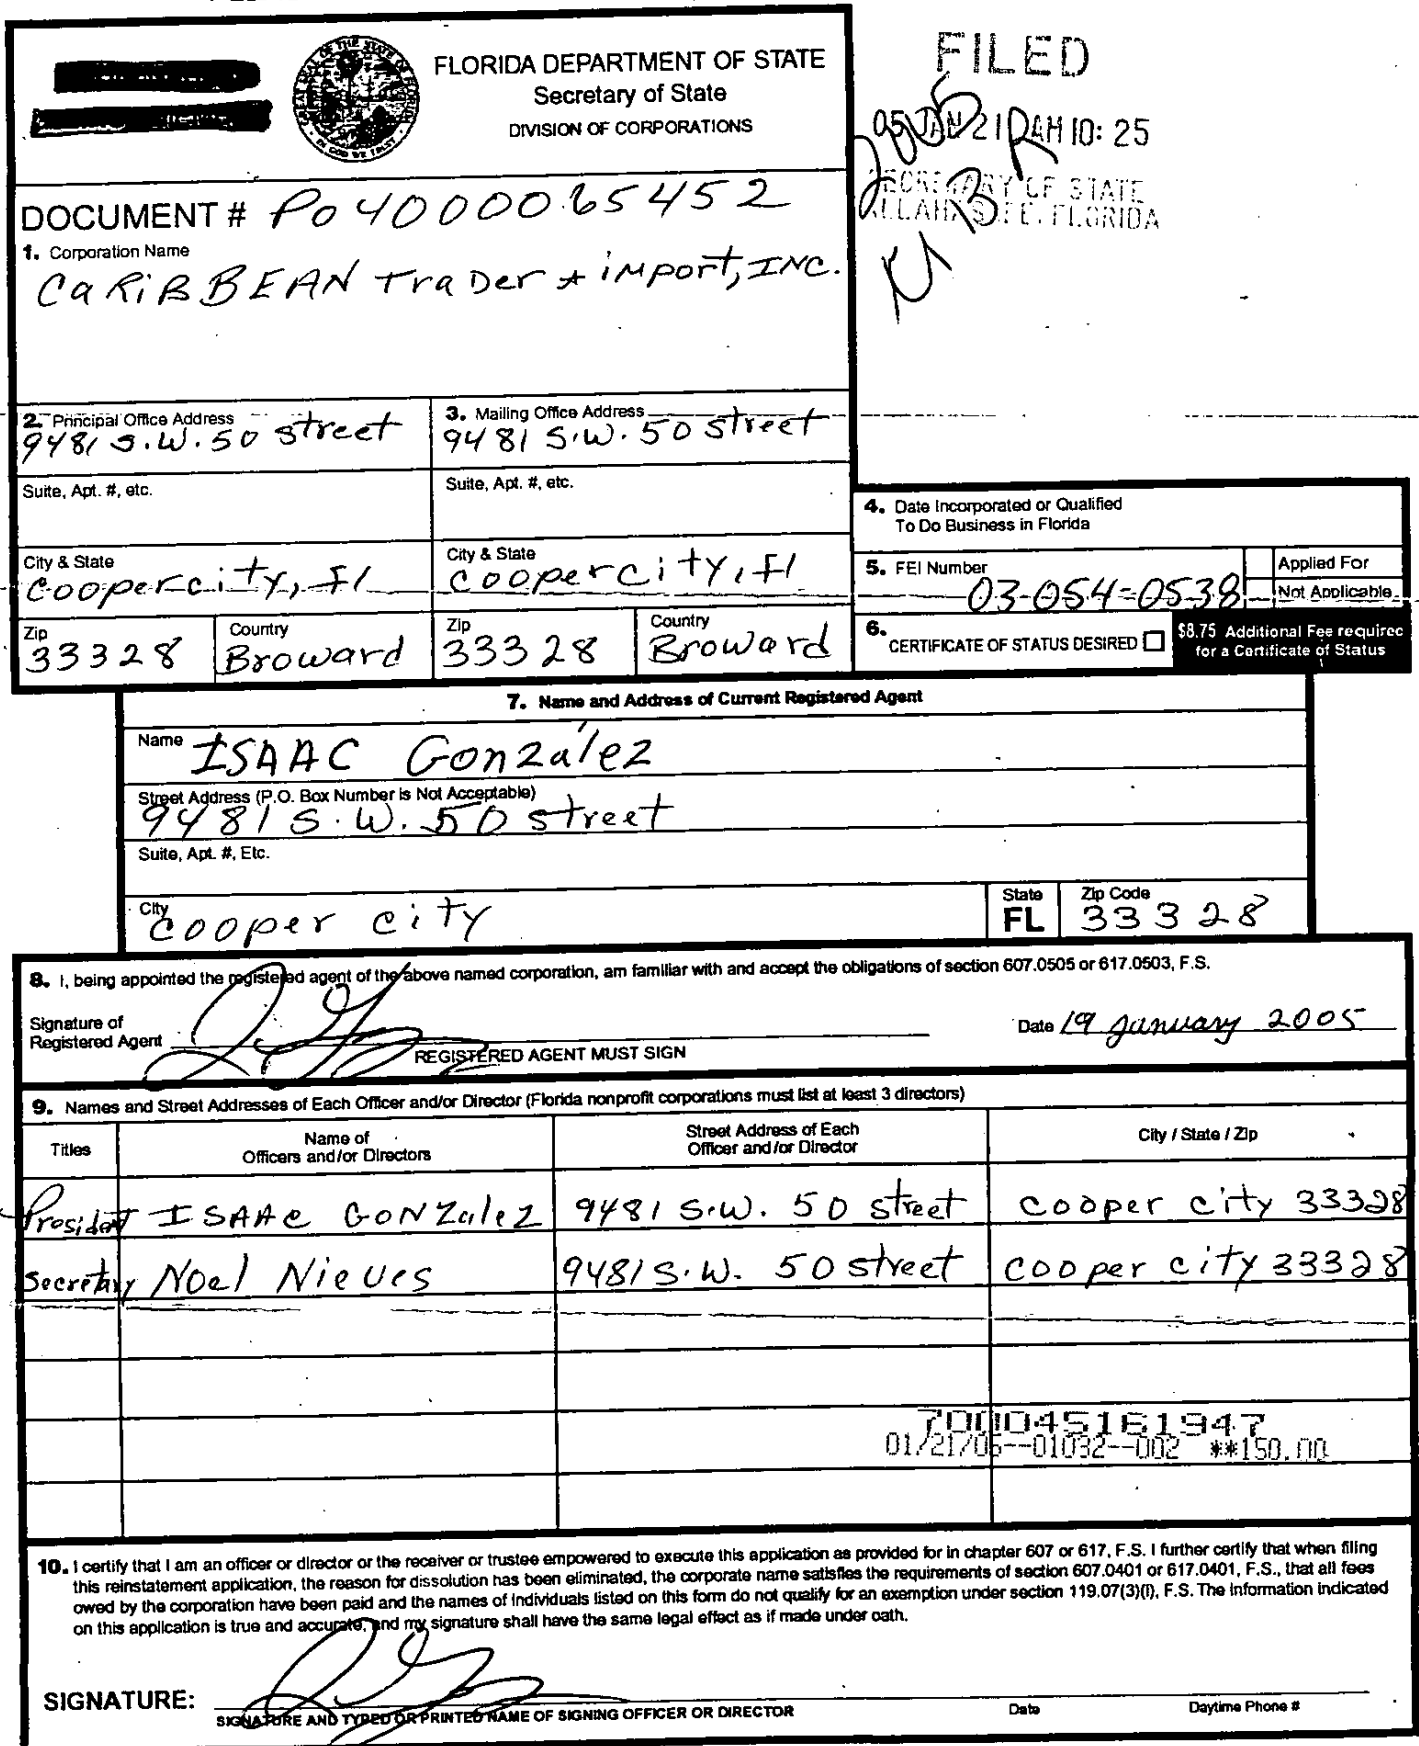 FLORIDA DEPARTMENT OF STATE
Secretary of State
DIVISION OF CORPORATIONS
FILED
05 JAN 21 AM 10: 25
SECRETARY OF STATE
TALLAHASSEE, FLORIDA
2005
UBR
DOCUMENT # P04000065452
1. Corporation Name
CaRiBBEAN TraDer + iMport, INC.
2. Principal Office Address
9481 S.W. 50 street
3. Mailing Office Address
9481 S.W. 50 street
Suite, Apt. #, etc.
Suite, Apt. #, etc.
4. Date Incorporated or Qualified
To Do Business in Florida
City & State
coopercity, Fl
City & State
coopercity, Fl
5. FEI Number
03-054-0538
Applied For
Not Applicable
Zip
33328
Country
Broward
Zip
33328
Country
Broward
6. CERTIFICATE OF STATUS DESIRED
$8.75 Additional Fee required
for a Certificate of Status
7. Name and Address of Current Registered Agent
Name
ISAAC González
Street Address (P.O. Box Number is Not Acceptable)
9481 S.W. 50 street
Suite, Apt. #, Etc.
City
cooper city
State
FL
Zip Code
33328
8. I, being appointed the registered agent of the above named corporation, am familiar with and accept the obligations of section 607.0505 or 617.0503, F.S.
Signature of
Registered Agent
REGISTERED AGENT MUST SIGN
Date 19 january 2005
9. Names and Street Addresses of Each Officer and/or Director (Florida nonprofit corporations must list at least 3 directors)
Titles
Name of
Officers and/or Directors
Street Address of Each
Officer and/or Director
City / State / Zip
President ISAAC GONZalez 9481 S.W. 50 street cooper city 33328
Secretary Noel Nieves 9481 S.W. 50 street cooper city 33328
700045161947
01/21/05--01032--002 **150.00
10. I certify that I am an officer or director or the receiver or trustee empowered to execute this application as provided for in chapter 607 or 617, F.S. I further certify that when filing
this reinstatement application, the reason for dissolution has been eliminated, the corporate name satisfies the requirements of section 607.0401 or 617.0401, F.S., that all fees
owed by the corporation have been paid and the names of individuals listed on this form do not qualify for an exemption under section 119.07(3)(i), F.S. The information indicated
on this application is true and accurate, and my signature shall have the same legal effect as if made under oath.
SIGNATURE:
SIGNATURE AND TYPED OR PRINTED NAME OF SIGNING OFFICER OR DIRECTOR
Date
Daytime Phone #